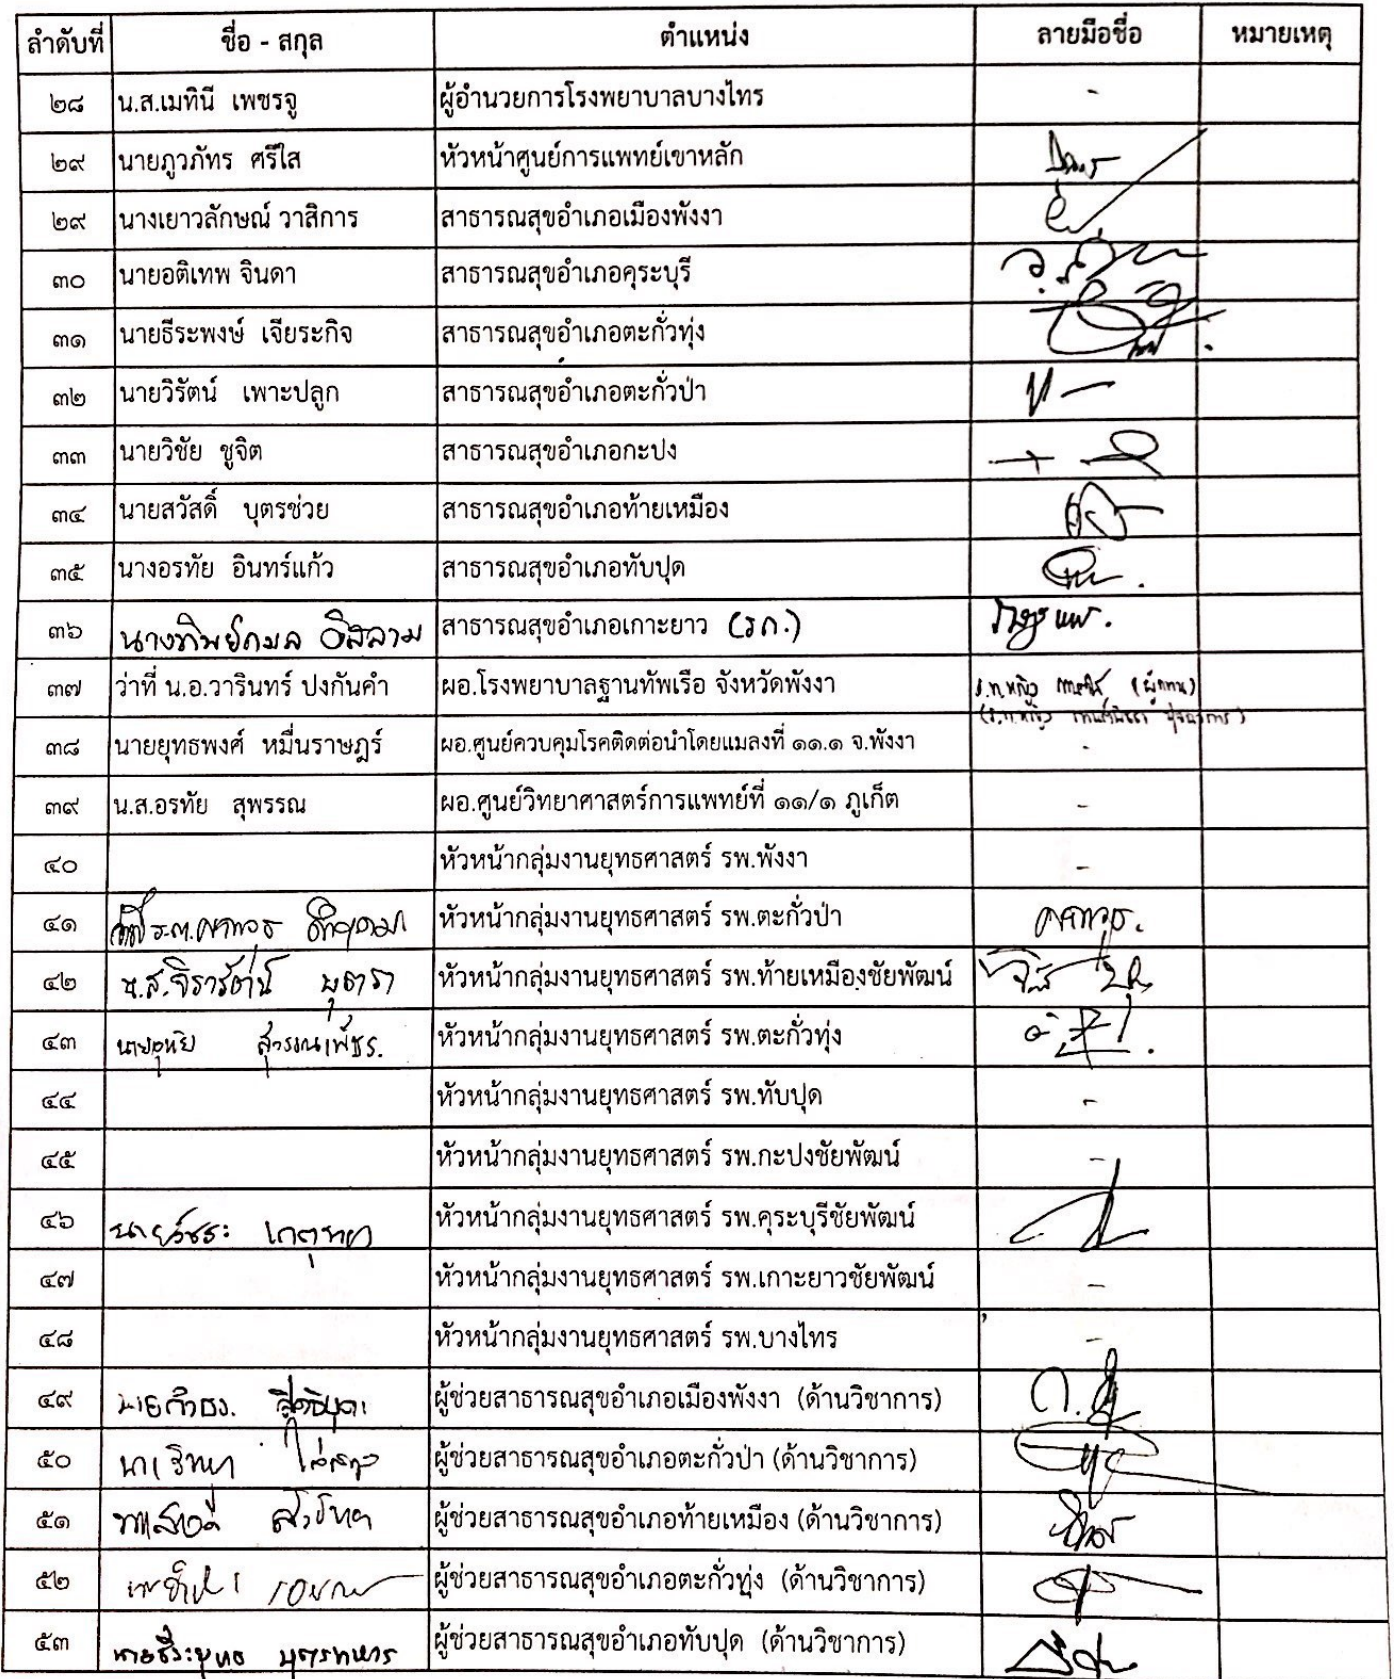 ลำดับที่ ชื่อ - สกุล ตำแหน่ง ลายมือชื่อ หมายเหตุ
๒๘ น.ส.เมทินี เพชรจู ผู้อำนวยการโรงพยาบาลบางไทร -
๒๙ นายภูวภัทร ศรีใส หัวหน้าศูนย์การแพทย์เขาหลัก
๒๙ นางเยาวลักษณ์ วาสิการ สาธารณสุขอำเภอเมืองพังงา
๓๐ นายอติเทพ จินดา สาธารณสุขอำเภอคุระบุรี
๓๑ นายธีระพงษ์ เจียระกิจ สาธารณสุขอำเภอตะกั่วทุ่ง
๓๒ นายวิรัตน์ เพาะปลูก สาธารณสุขอำเภอตะกั่วป่า
๓๓ นายวิชัย ชูจิต สาธารณสุขอำเภอกะปง
๓๔ นายสวัสดิ์ บุตรช่วย สาธารณสุขอำเภอท้ายเหมือง
๓๕ นางอรทัย อินทร์แก้ว สาธารณสุขอำเภอทับปุด
๓๖ นางทิพย์กมล อิสลาม สาธารณสุขอำเภอเกาะยาว (รก.)
๓๗ ว่าที่ น.อ.วารินทร์ ปงกันคำ ผอ.โรงพยาบาลฐานทัพเรือ จังหวัดพังงา
๓๘ นายยุทธพงศ์ หมื่นราษฎร์ ผอ.ศูนย์ควบคุมโรคติดต่อนำโดยแมลงที่ ๑๑.๑ จ.พังงา -
๓๙ น.ส.อรทัย สุพรรณ ผอ.ศูนย์วิทยาศาสตร์การแพทย์ที่ ๑๑/๑ ภูเก็ต -
๔๐ หัวหน้ากลุ่มงานยุทธศาสตร์ รพ.พังงา -
๔๑ หัวหน้ากลุ่มงานยุทธศาสตร์ รพ.ตะกั่วป่า
๔๒ น.ส.จิรารัตน์ หัวหน้ากลุ่มงานยุทธศาสตร์ รพ.ท้ายเหมืองชัยพัฒน์
๔๓ สุวรรณเพ็ชร. หัวหน้ากลุ่มงานยุทธศาสตร์ รพ.ตะกั่วทุ่ง
๔๔ หัวหน้ากลุ่มงานยุทธศาสตร์ รพ.ทับปุด -
๔๕ หัวหน้ากลุ่มงานยุทธศาสตร์ รพ.กะปงชัยพัฒน์ -
๔๖ นายวัชระ หัวหน้ากลุ่มงานยุทธศาสตร์ รพ.คุระบุรีชัยพัฒน์
๔๗ หัวหน้ากลุ่มงานยุทธศาสตร์ รพ.เกาะยาวชัยพัฒน์ -
๔๘ หัวหน้ากลุ่มงานยุทธศาสตร์ รพ.บางไทร -
๔๙ ผู้ช่วยสาธารณสุขอำเภอเมืองพังงา (ด้านวิชาการ)
๕๐ ผู้ช่วยสาธารณสุขอำเภอตะกั่วป่า (ด้านวิชาการ)
๕๑ ผู้ช่วยสาธารณสุขอำเภอท้ายเหมือง (ด้านวิชาการ)
๕๒ ผู้ช่วยสาธารณสุขอำเภอตะกั่วทุ่ง (ด้านวิชาการ)
๕๓ นายธีระยุทธ บุตรทหาร ผู้ช่วยสาธารณสุขอำเภอทับปุด (ด้านวิชาการ)